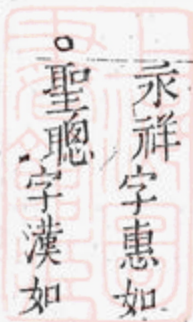 永祥字惠如
聖聰字漢如